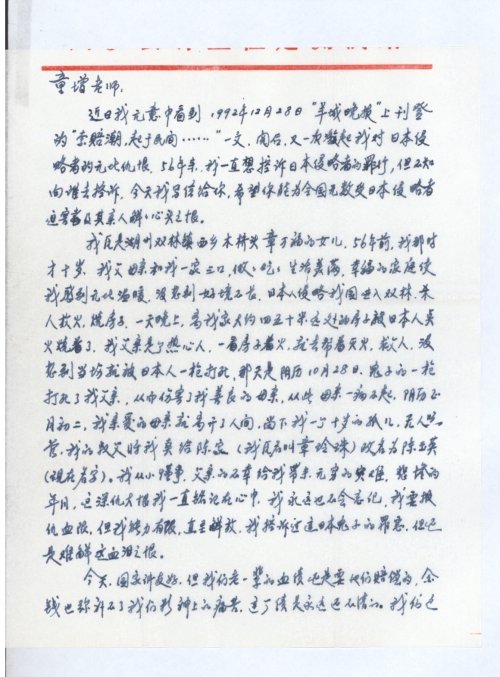 童增老师，
近日我无意中看到1992年12月28日"羊城晚报"上刊登
的"索赔潮，起于民间……"一文，阅后，又一次激起我对日本侵
略者的无比仇恨，56年来，我一直想控诉日本侵略者的罪行，但不知
向谁去控诉，今天我写信给你，希望你能为全国无数受日本侵略者
迫害者及其亲人解心头之恨。
我原是湖州双林镇西乡木桥头章万福的女儿，56年前，我那时
才十岁，我父母亲和我一家三口，做做吃吃生活美满，幸福的家庭使
我感到无比温暖，没想到好境不长，日本人侵略我国进入双林，杀
人放火，烧房子，一天晚上，离我家大约四五十米远处的房子被日本人点
火烧着了，我父亲是个热心人，一看房子着火，就去帮着灭火，救人，没
想到当场就被日本人一枪打死，那天是阴历10月28日，鬼子的一枪
打死了我父亲，从而伤害了我善良的母亲，从此母亲一病不起，阴历正
月初二，我亲爱的母亲就离开了人间，留下我一个十岁的孤儿，无人照
管，我的叔父将我卖给陈家(我原名叫章珍珠)改名为陈玉英
(现在名字)。我从小懂事，父亲的不幸给我带来无穷的灾难，悲惨的
年月，这深仇大恨我一直铭记在心中，我永远也不会忘记，我要报
仇血恨，但我能力有限，直至解放，我控诉过这日本鬼子的罪恶，但也
是难解这血泪之恨。
今天，国家讲友好，但我们老一辈的血债也是要他们赔偿的，金
钱也弥补不了我们精神上的痛苦，这个债是永远还不清的。我们也